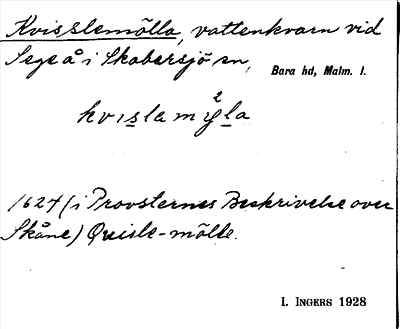 Kvisslemölla, vattenkvarn vid
Sege å i Skabersjö sn, Bara hd, Malm. l.
kvıslamy̆la
1624 (i Provsternes Beskrivelse over
Skåne) Quisle-mölle.
I. INGERS 1928